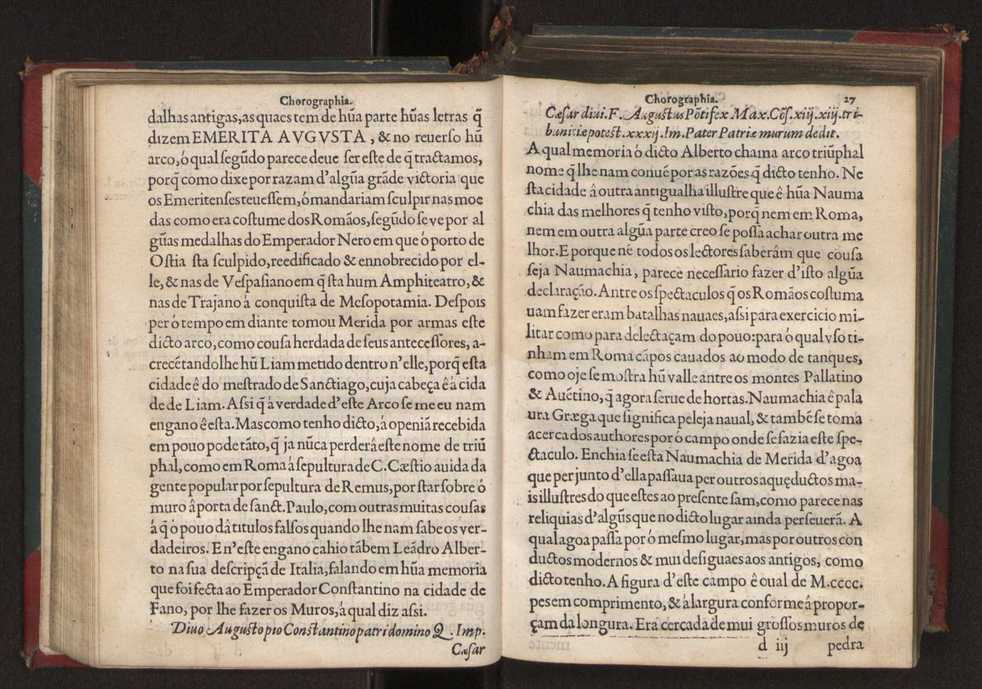 Chorographia.
dalhas antigas, as quaes tem de hũa parte hũas letras q̃
dizem EMERITA AVGVSTA, & no reuerso hũ
arco, ó qual segũdo parece deue ser este de q̃ tractamos,
porq̃ como dixe por razam d'algũa grãde victoria que
os Emeritenses teuessem, ó mandariam sculpir nas moe
das como era costume dos Romãos, segũdo se ve por al
gũas medalhas do Emperador Nero em que ó porto de
Ostia sta sculpido, reedificado & ennobrecido por el-
le, & nas de Vespasiano em q̃ sta hum Amphiteatro, &
nas de Trajano á conquista de Mesopotamia. Despois
per ó tempo em diante tomou Merida por armas este
dicto arco, como cousa herdada de seus antecessores, a-
crecẽtando lhe hũ Liam metido dentro n'elle, porq̃ esta
cidade ê do mestrado de Sanctiago, cuja cabeça ê á cida
de de Liam. Assi q̃ á verdade d'este Arco se me eu nam
engano ê esta. Mas como tenho dicto, á openiã recebida
em pouo pode tãto, q̃ ja nũca perderá este nome de triũ
phal, como em Roma á sepultura de C. Cæstio auida da
gente popular por sepultura de Remus, por star sobre ó
muro â porta de sanct. Paulo, com outras muitas cousas
á q̃ ó pouo dâ titulos falsos quando lhe nam sabe os ver-
dadeiros. E n'este engano cahio tãbem Leãdro Alber-
to na sua descripçã de Italia, falando em hũa memoria
que foi fecta ao Emperador Constantino na cidade de
Fano, por lhe fazer os Muros, á qual diz assi.
Diuo Augusto pio Constantino patri domino Q. Imp.
Cæsar
Chorographia. 27
Cæsar diui. F. Augustus Põtifex Max. Cõs. xiij. xiij. tri-
bunitiæ potest. xxxij. Im. Pater Patriæ murum dedit.
A qual memoria ó dicto Alberto chama arco triũphal
nome q̃ lhe nam conuẽ por as razões q̃ dicto tenho. Ne
sta cidade â outra antigualha illustre que ê hũa Nauma
chia das melhores q̃ tenho visto, porq̃ nem em Roma,
nem em outra algũa parte creo se possa achar outra me
lhor. E porque nẽ todos os lectores saberâm que cousa
seja Naumachia, parece necessario fazer d'isto algũa
declaração. Antre os spectaculos q̃ os Romãos costuma
uam fazer eram batalhas nauaes, assi para exercicio mi-
litar como para delectaçam do pouo: para ó qual vso ti-
nham em Roma cãpos cauados ao modo de tanques,
como oje se mostra hũ valle antre os montes Pallatino
& Auẽtino, q̃ agora serue de hortas. Naumachia ê pala
ura Græga que significa peleja naual, & tambẽ se toma
acerca dos authores por ó campo onde se fazia este spe-
ctaculo. Enchia se esta Naumachia de Merida d'agoa
que per junto d'ella passaua per outros aquęductos ma-
is illustres do que estes ao presente sam, como parece nas
reliquias d'algũs que no dicto lugar ainda perseuerã. A
qual agoa passa por ó mesmo lugar, mas por outros con
ductos modernos & mui desiguaes aos antigos, como
dicto tenho. A figura d'este campo ê oual de M.cccc.
pes em comprimento, & â largura conforme á propor-
çam da longura. Era cercada de mui grossos muros de
d iij pedra